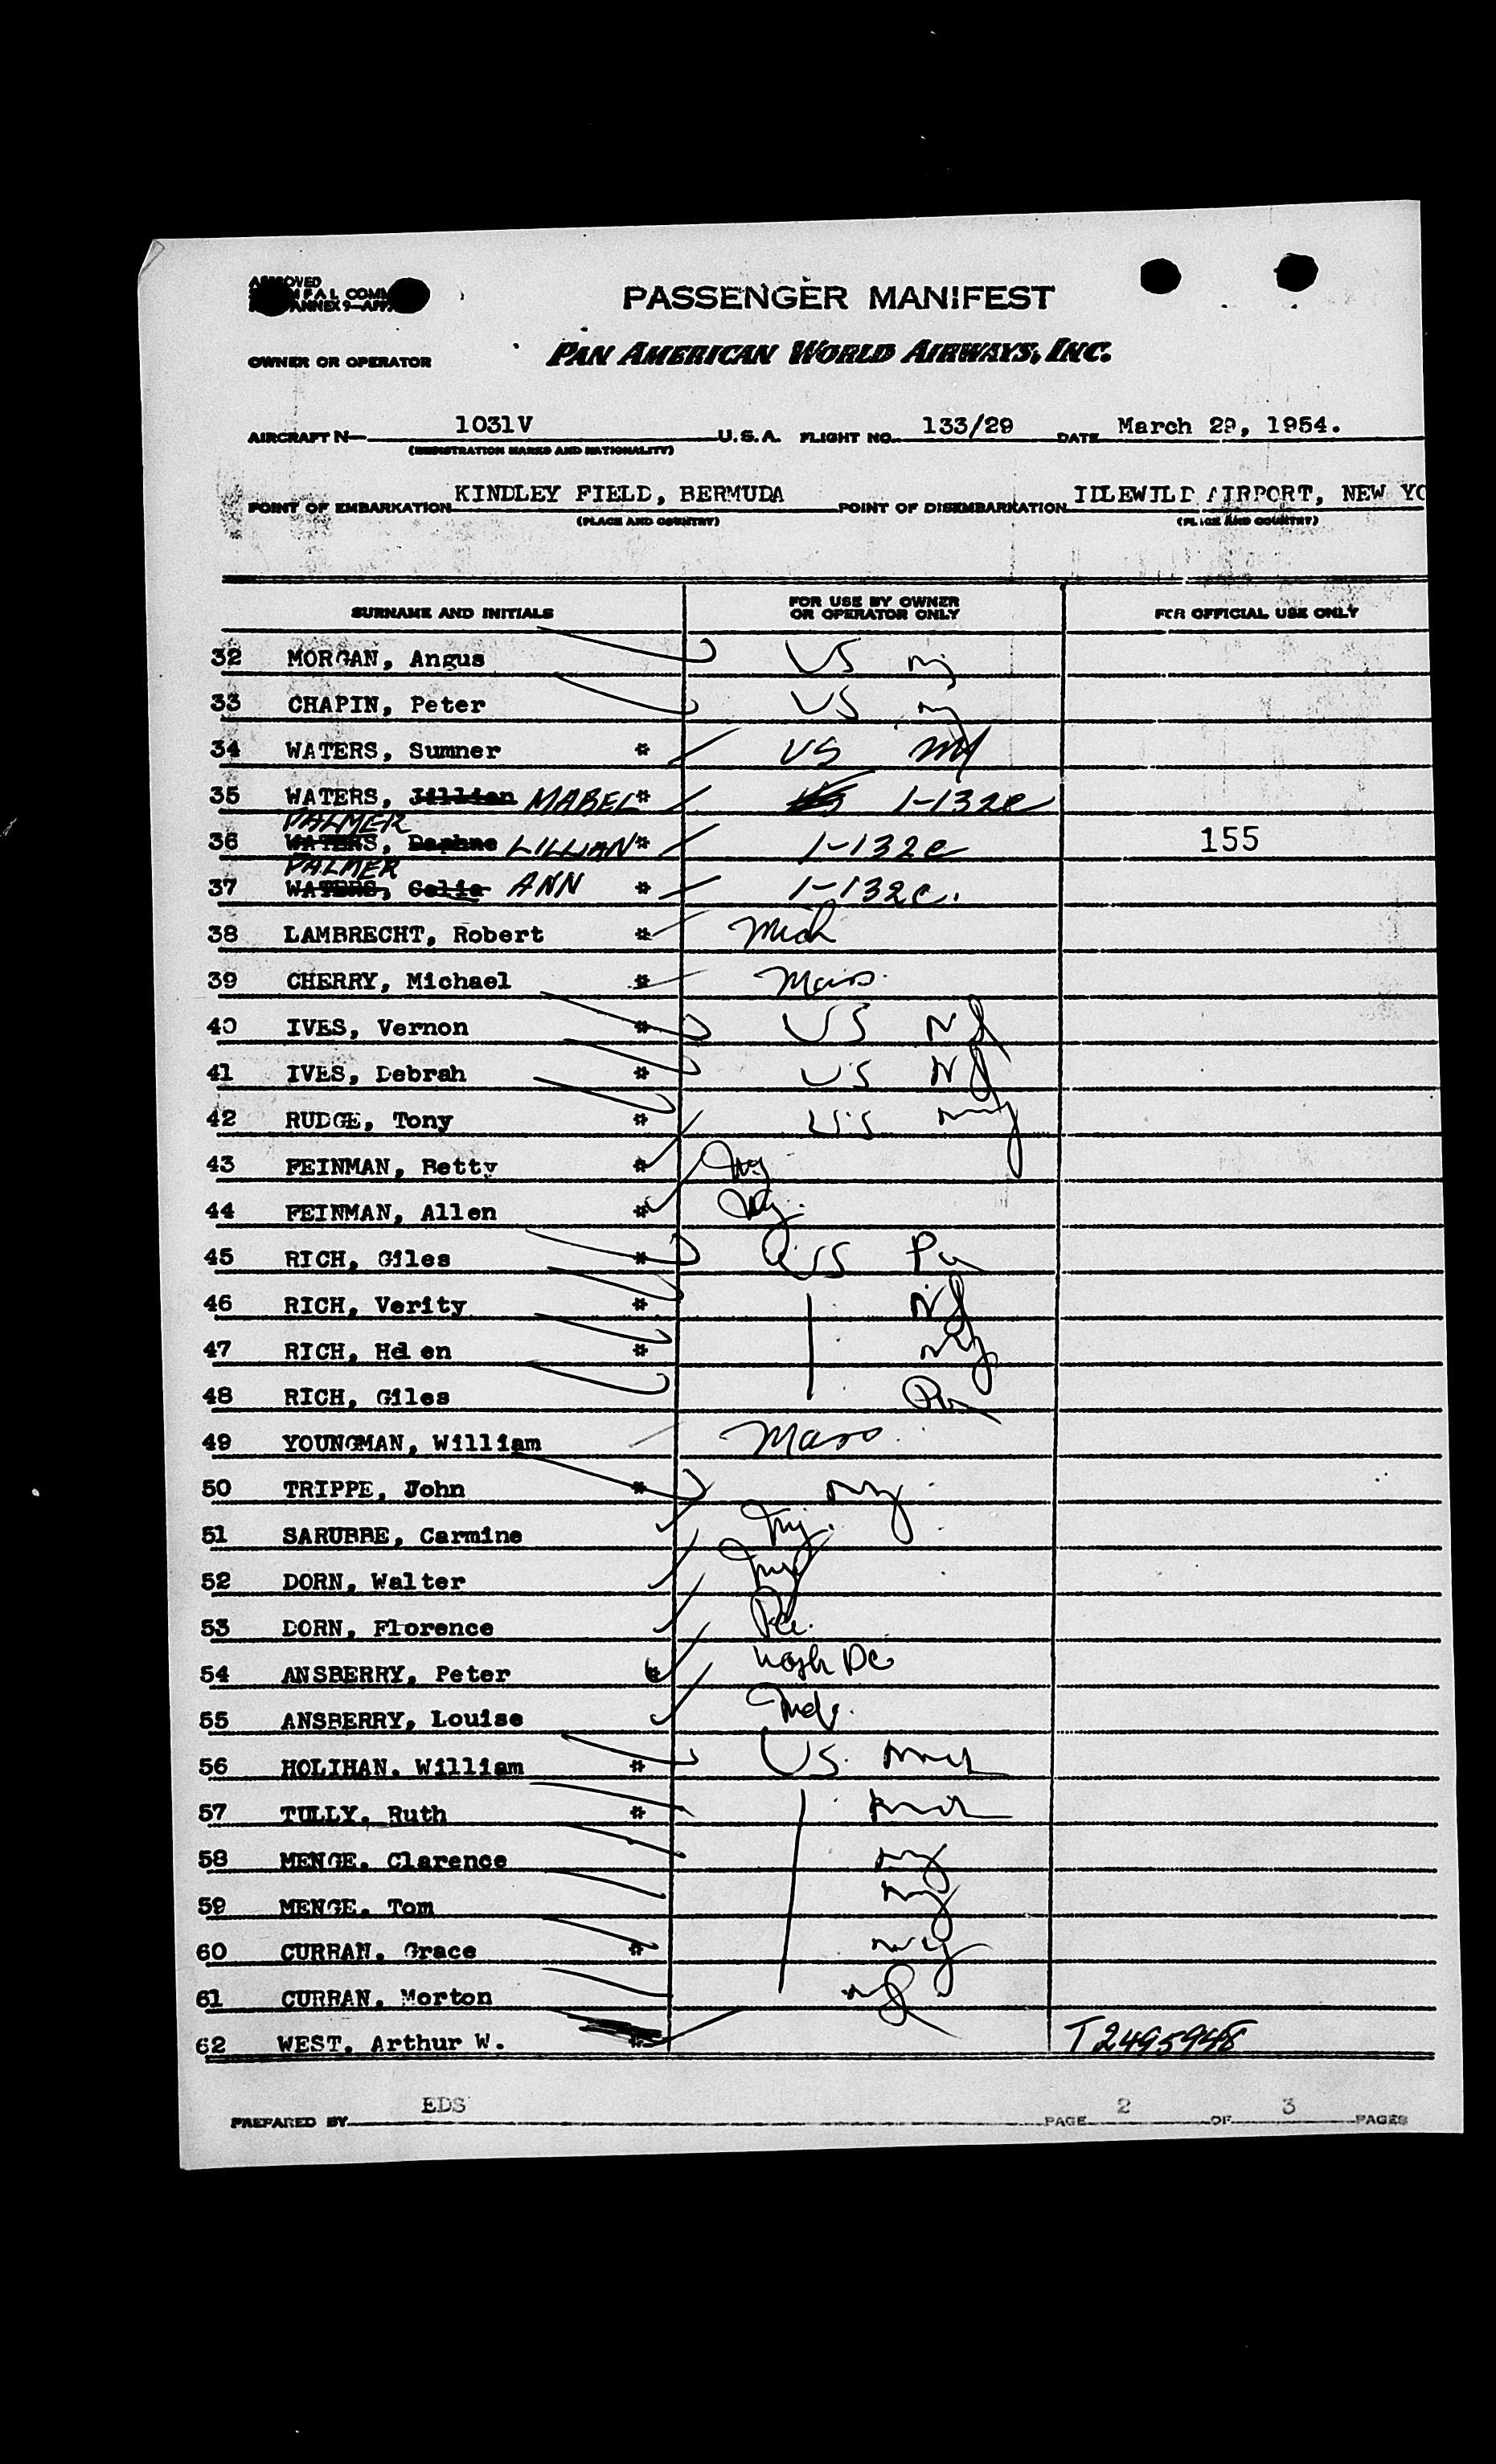 PASSENGER MANIFEST
OWNER OR OPERATOR PAN AMERICAN WORLD AIRWAYS, INC.
AIRCRAFT N— 1031V U.S.A. FLIGHT NO. 133/29 DATE March 29, 1954.
(REGISTRATION MARKS AND NATIONALITY)
POINT OF EMBARKATION KINDLEY FIELD, BERMUDA POINT OF DISEMBARKATION IDLEWILD AIRPORT, NEW YO
(PLACE AND COUNTRY) (PLACE AND COUNTRY)
SURNAME AND INITIALS FOR USE BY OWNER OR OPERATOR ONLY FOR OFFICIAL USE ONLY
32 MORGAN, Angus US
33 CHAPIN, Peter US
34 WATERS, Sumner * US
35 WATERS, Jillian MABEL * 1-132c
PALMER
36 WATERS, Daphne LILLIAN * 1-132c 155
PALMER
37 WATERS, Celia ANN * 1-132c.
38 LAMBRECHT, Robert * Mich
39 CHERRY, Michael * Mass.
40 IVES, Vernon * US NJ
41 IVES, Debrah * US NJ
42 RUDGE, Tony * US
43 FEINMAN, Betty * NY
44 FEINMAN, Allen * NY.
45 RICH, Giles * US Pa
46 RICH, Verity * NJ
47 RICH, Helen * NY
48 RICH, Giles Pa
49 YOUNGMAN, William Mass.
50 TRIPPE, John * NY
51 SARUBBE, Carmine
52 DORN, Walter
53 DORN, Florence Pa.
54 ANSBERRY, Peter * Wash DC
55 ANSBERRY, Louise
56 HOLIHAN, William * US.
57 TULLY, Ruth *
58 MENGE, Clarence NY
59 MENGE, Tom NY
60 CURRAN, Grace * NY
61 CURRAN, Morton
62 WEST, Arthur W. * T2495948
PREPARED BY EDS PAGE 2 OF 3 PAGES